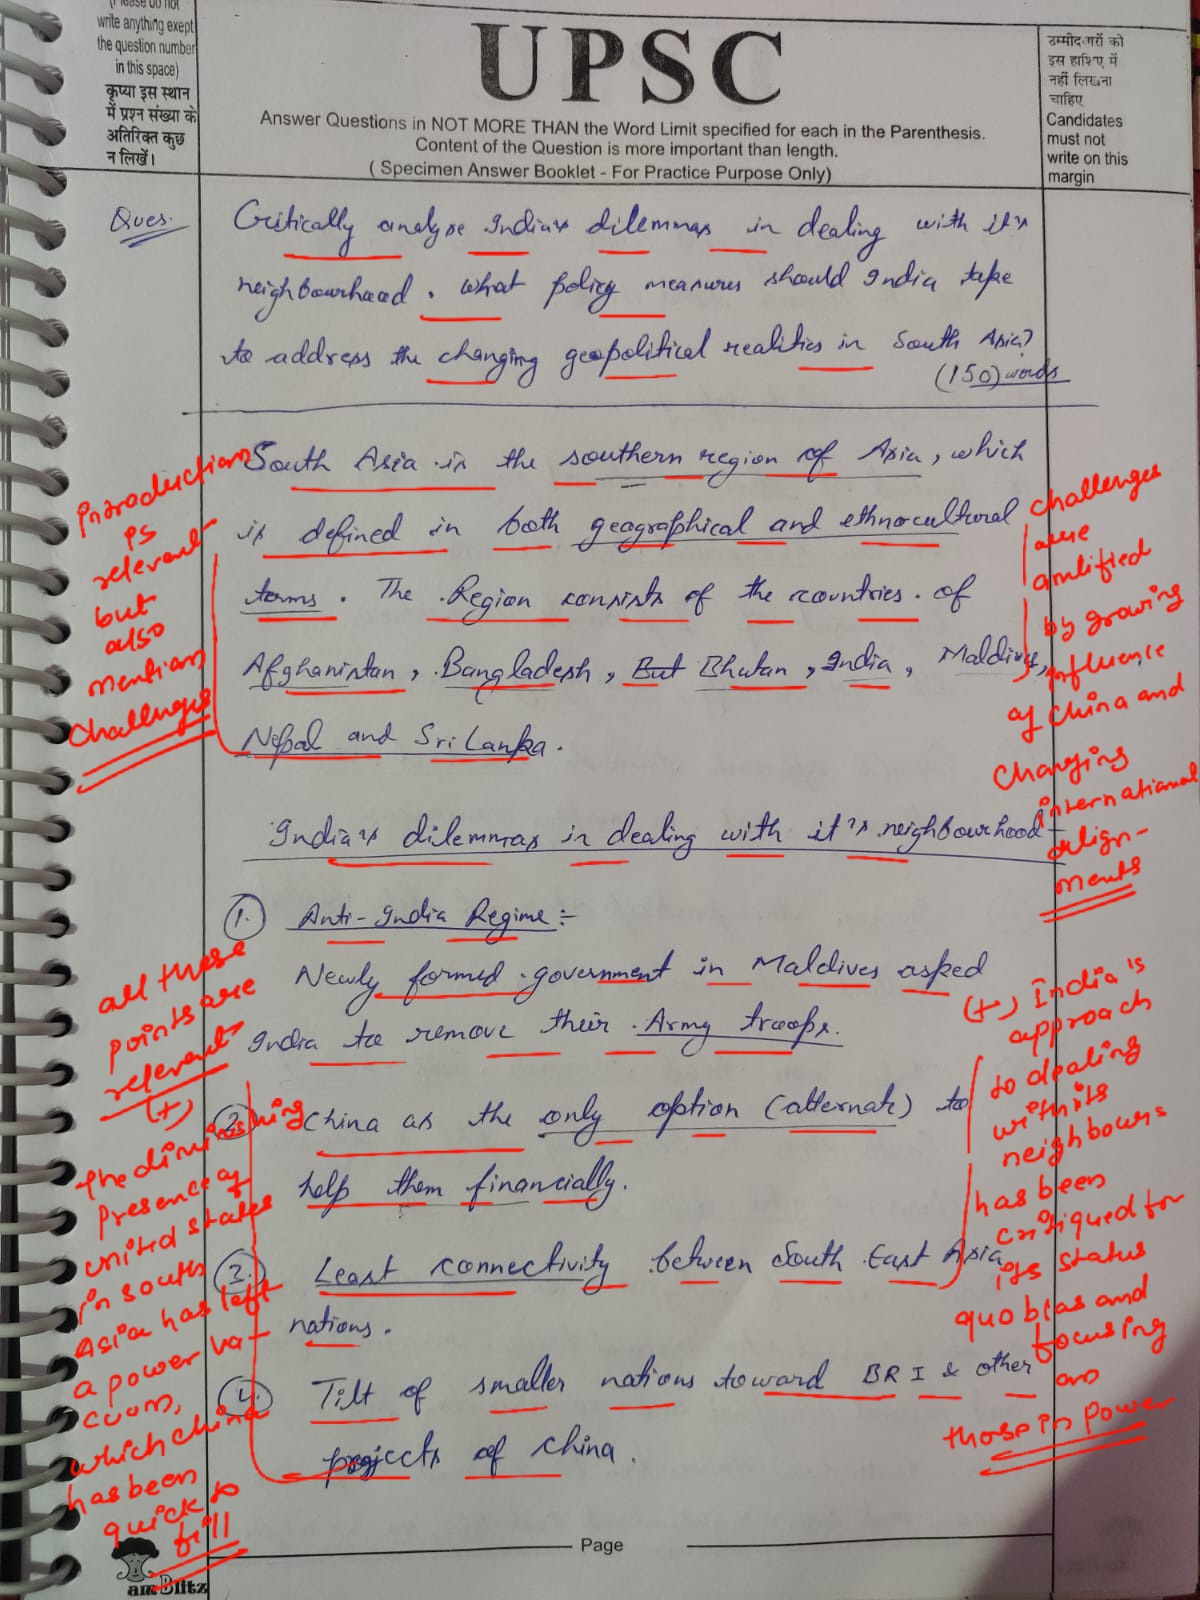 (Please do not
write anything exept
the question number
in this space)
कृप्या इस स्थान
में प्रश्न संख्या के
अतिरिक्त कुछ
न लिखें।
UPSC
Answer Questions in NOT MORE THAN the Word Limit specified for each in the Parenthesis.
Content of the Question is more important than length.
( Specimen Answer Booklet - For Practice Purpose Only)
उम्मीदवारों को
इस हाशिए में
नहीं लिखना
चाहिए
Candidates
must not
write on this
margin
Ques.
Critically analyse India's dilemmas in dealing with it's
neighbourhood. What policy measures should India take
to address the changing geopolitical realities in South Asia?
(150) words
South Asia is the southern region of Asia, which
is defined in both geographical and ethnocultural
terms. The Region consists of the countries of
Afghanistan, Bangladesh, But Bhutan, India, Maldives,
Nepal and Sri Lanka.
Introduction
is
relevant
but
also
mention
challenges
challenges
are
amlified
by growing
influence
of China and
changing
international
align-
ments
India's dilemmas in dealing with it's neighbourhood-
1. Anti-India Regime:-
Newly formed government in Maldives asked
India to remove their Army troops.
2. China as the only option (alternate) to
help them financially.
3. Least connectivity between South East Asia
nations.
4. Tilt of smaller nations toward BRI & other
projects of China.
all these
points are
relevant
(+)
the diminishing
presence of
united states
in south
Asia has left
a power va-
cuum,
which china
has been
quick to
fill
(+) India's
approach
to dealing
with its
neighbours
has been
critiqued for
its status
quo bias and
focusing
on
those in power
Page
amBlitz